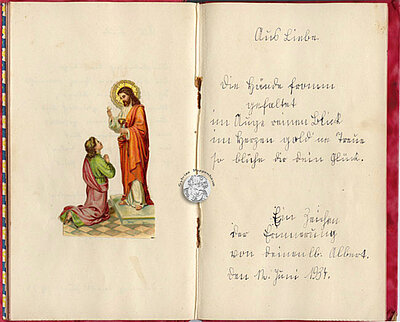 Aus Liebe.
Die Hände fromm
gefaltet
im Auge reinen Blick
im Herzen gold'ne Treue
so blühe dir dein Glück.
Ein Zeichen
der Erinnerung
von deinem lb. Albert.
den 12. Juni 1937.